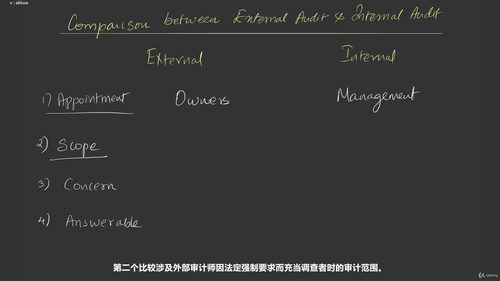 Comparison between External Audit & Internal Audit
External Internal
1) Appointment Owners Management
2) Scope
3) Concern
4) Answerable
第二个比较涉及外部审计师因法定强制要求而充当调查者时的审计范围。
Udemy